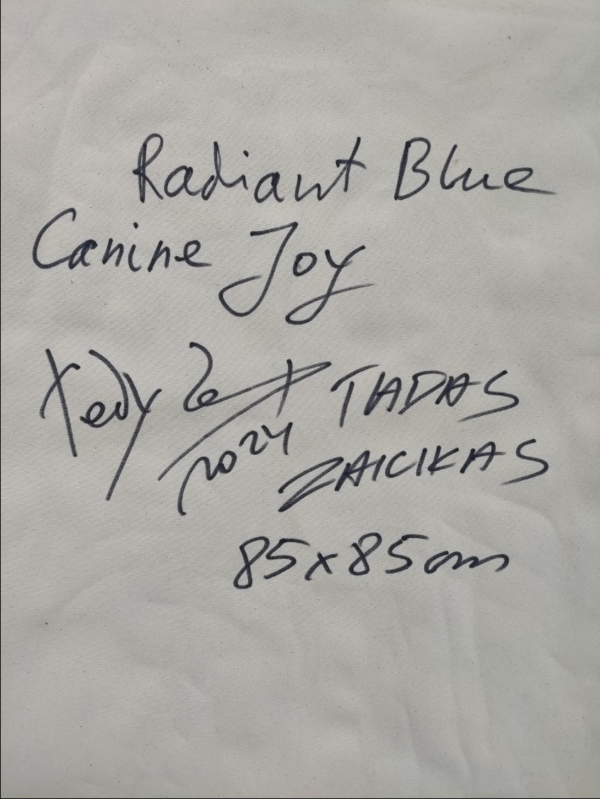 Radiant Blue
Canine Joy
Tedy Zet TADAS
2024 ZAICIKAS
85x85cm